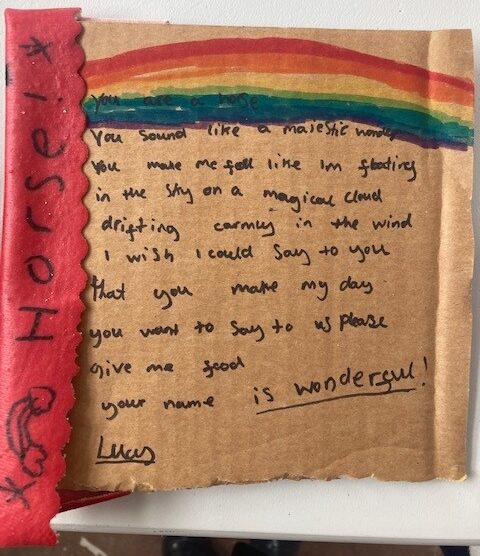 *Horse!*
You are a hose
You sound like a majestic wonder
You make me fell like Im floating
in the sky on a magical cloud
drifting carmly in the wind
I wish I could say to you
that you make my day
you want to say to us please
give me food
your name is wonderful!
Lucas